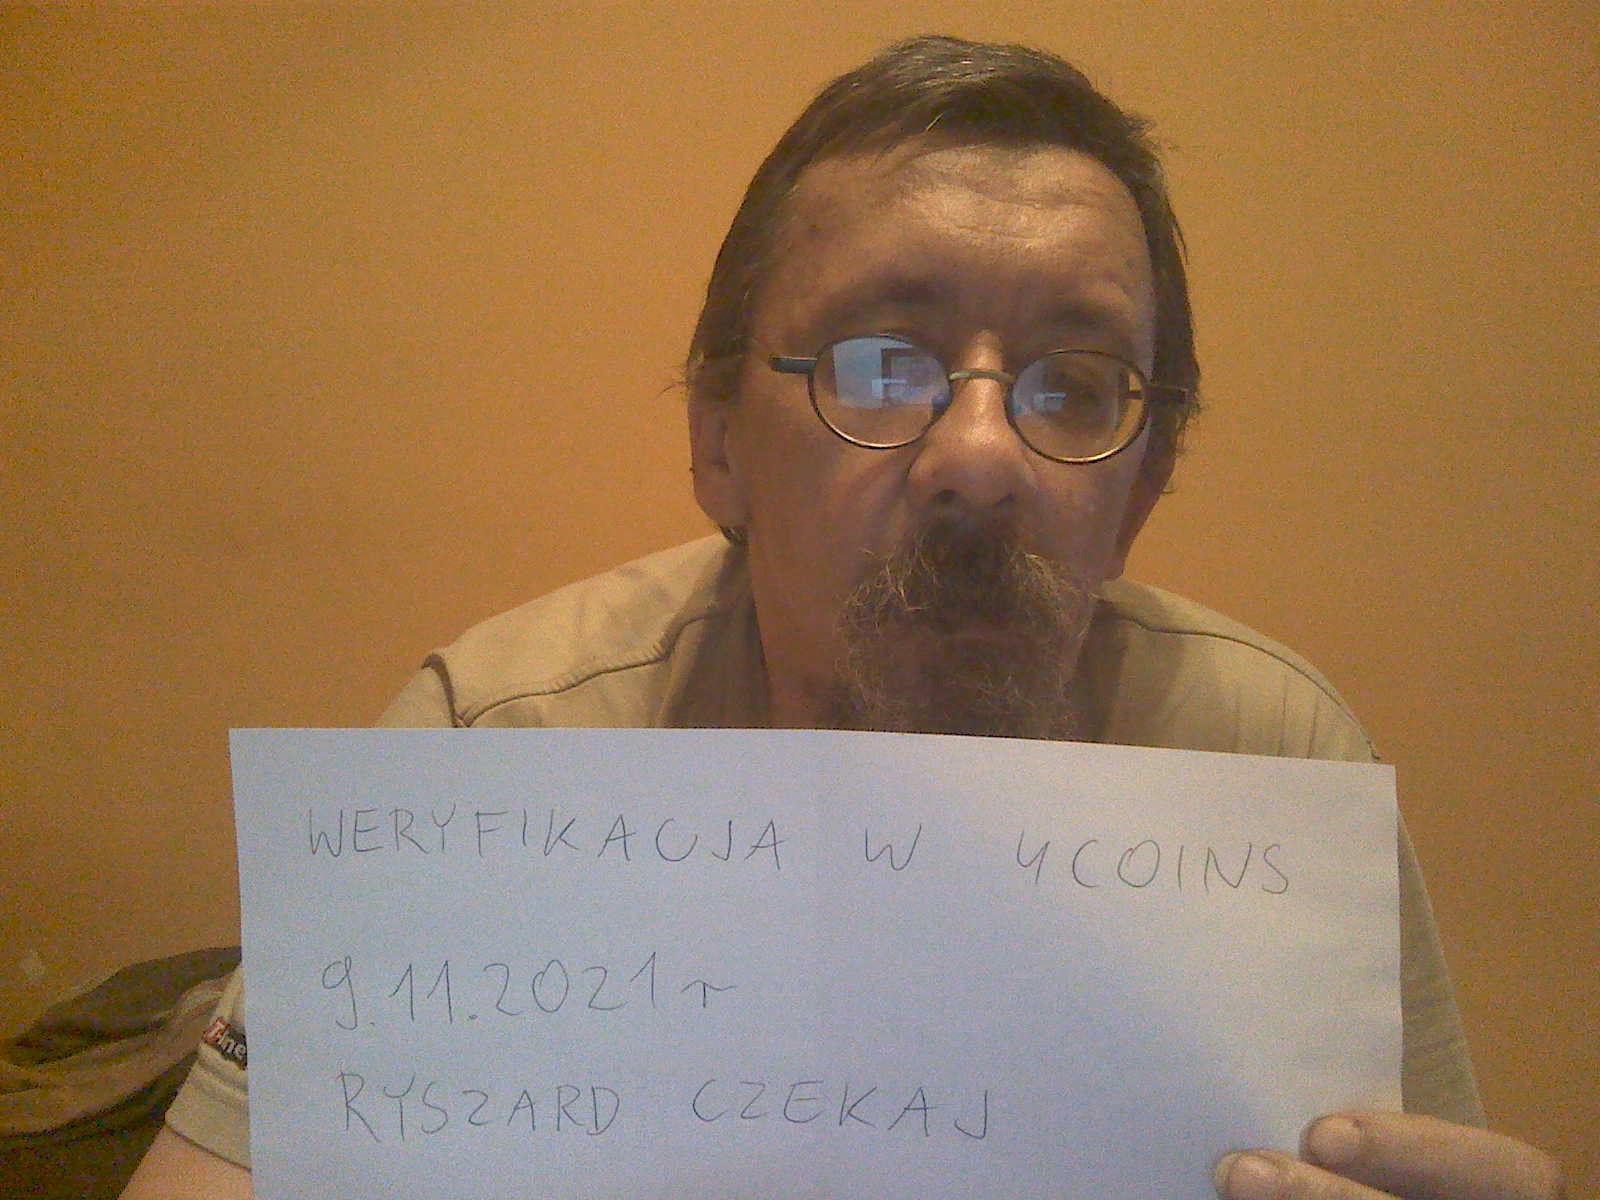 WERYFIKACJA W 4COINS
9.11.2021 r
RYSZARD CZEKAJ